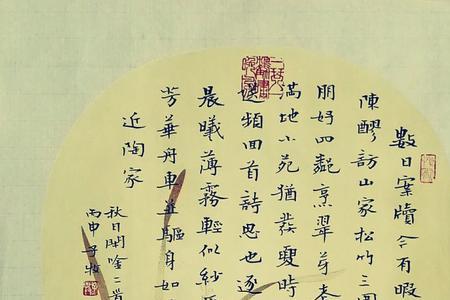 數日案牘今有暇
陳醪訪山家松竹三
朋好四甌烹翠芽
滿地小苑猶發夏時
頻回首詩思也逐
晨曦薄霧輕似紗
芳華舟車並驅身如
近陶家
秋日閒唫二首
丙申子牧